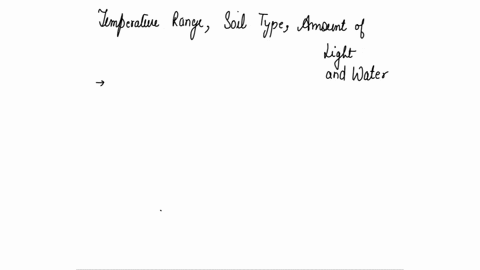 Temperature Range, Soil Type, Amount of
Light
and Water
→